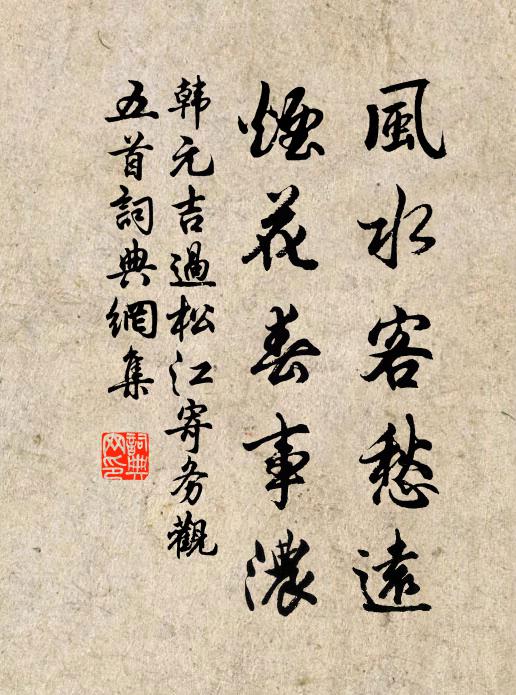 風水客愁遠
煙花春事濃
韩元吉過松江寄务觀
五首詞典網集
詞典网印